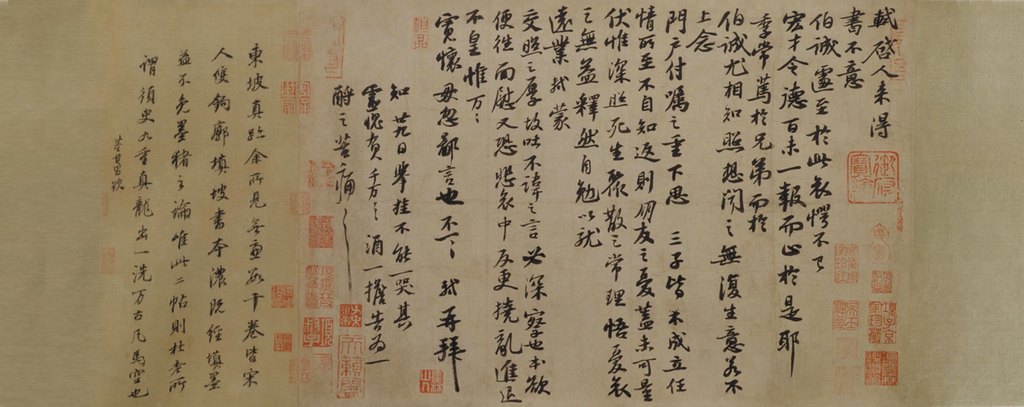 軾啓人来得
書不意
伯誠遽至於此哀愕不已
宏才令德百未一報而止於是耶
季常篤於兄弟而於
伯誠尤相知照想聞之無復生意若不
上念
門户付囑之重下思三子皆未成立任
情所至不自知返則朋友之憂蓋未可量
伏惟深照死生聚散之常理悟憂哀
之無益釋然自勉以就
遠業軾蒙
交照之厚故吐不諱之言必深察也本欲
便往面慰又恐悲哀中反更撓亂進退
不皇惟万々
寬懷毋忽鄙言也不一々軾再拜
知廿九日舉挂不能一哭其
靈愧負千万々酒一擔告為一
酹之苦痛々
東坡真跡余所見無慮數十卷皆宋
人雙鉤廓填坡書本濃既經填墨
益不免墨豬之論唯此二帖則杜老所
謂須臾九重真龍出一洗万古凡馬空也
董其昌題